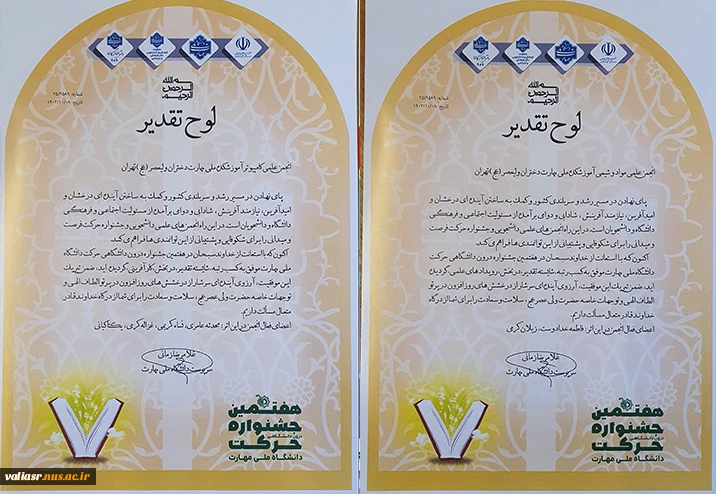 شماره: ۲۵/۹۵۷۹
تاریخ: ۱۴۰۳/۱۰/۱۸
لوح تقدیر
انجمن علمی کامپیوتر آموزشکده ملی مهارت دختران ولیعصر (عج) تهران
پای نهادن در مسیر رشد و سربلندی کشور و کمک به ساختن آینده‌ای درخشان و
امیدآفرین، نیازمند آفرینش، شادابی و دوای برآمده از مسئولیت اجتماعی و فرهنگی
دانشگاه و دانشجویان است. در این راه انجمن‌های علمی دانشجویی و جشنواره حرکت فرصت
و میدانی را برای شکوفایی و پشتیبانی از این توانمندی‌ها فراهم می‌کند.
اکنون که با استعانت از خداوند سبحان در هفتمین جشنواره درون دانشگاهی حرکت دانشگاه
ملی مهارت موفق به کسب رتبه شایسته تقدیر، در بخش کارآفرینی گردیده‌اید، ضمن تبریک
این موفقیت، آرزوی آینده‌ای سرشار از درخشش‌های روزافزون در پرتو الطاف الهی و
توجهات خاصه حضرت ولی عصر عج، سلامت و سعادت را برای شما از درگاه خداوند قادر
متعال مسألت داریم.
اعضای فعال انجمن در این اثر: محدثه عامری، ثناء کریمی، غزاله کرمی، یکتا کیانی
غلامرضا زمانی
سرپرست دانشگاه ملی مهارت
هفتمین
جشنواره
درون دانشگاهی
حرکت
دانشگاه ملی مهارت
شماره: ۲۵/۹۵۷۹
تاریخ: ۱۴۰۳/۱۰/۱۸
لوح تقدیر
انجمن علمی مواد و شیمی آموزشکده ملی مهارت دختران ولیعصر (عج) تهران
پای نهادن در مسیر رشد و سربلندی کشور و کمک به ساختن آینده‌ای درخشان و
امیدآفرین، نیازمند آفرینش، شادابی و دوای برآمده از مسئولیت اجتماعی و فرهنگی
دانشگاه و دانشجویان است. در این راه انجمن‌های علمی دانشجویی و جشنواره حرکت فرصت
و میدانی را برای شکوفایی و پشتیبانی از این توانمندی‌ها فراهم می‌کند.
اکنون که با استعانت از خداوند سبحان در هفتمین جشنواره درون دانشگاهی حرکت
دانشگاه ملی مهارت موفق به کسب رتبه شایسته تقدیر، در بخش رویدادهای علمی گردیده
اید، ضمن تبریک این موفقیت، آرزوی آینده‌ای سرشار از درخشش‌های روزافزون در پرتو
الطاف الهی و توجهات خاصه حضرت ولی عصر عج، سلامت و سعادت را برای شما از درگاه
خداوند قادر متعال مسألت داریم.
اعضای فعال انجمن در این اثر: فاطمه خدادوست، ژیلان کرمی
غلامرضا زمانی
سرپرست دانشگاه ملی مهارت
هفتمین
جشنواره
درون دانشگاهی
حرکت
دانشگاه ملی مهارت
valiasr.nus.ac.ir